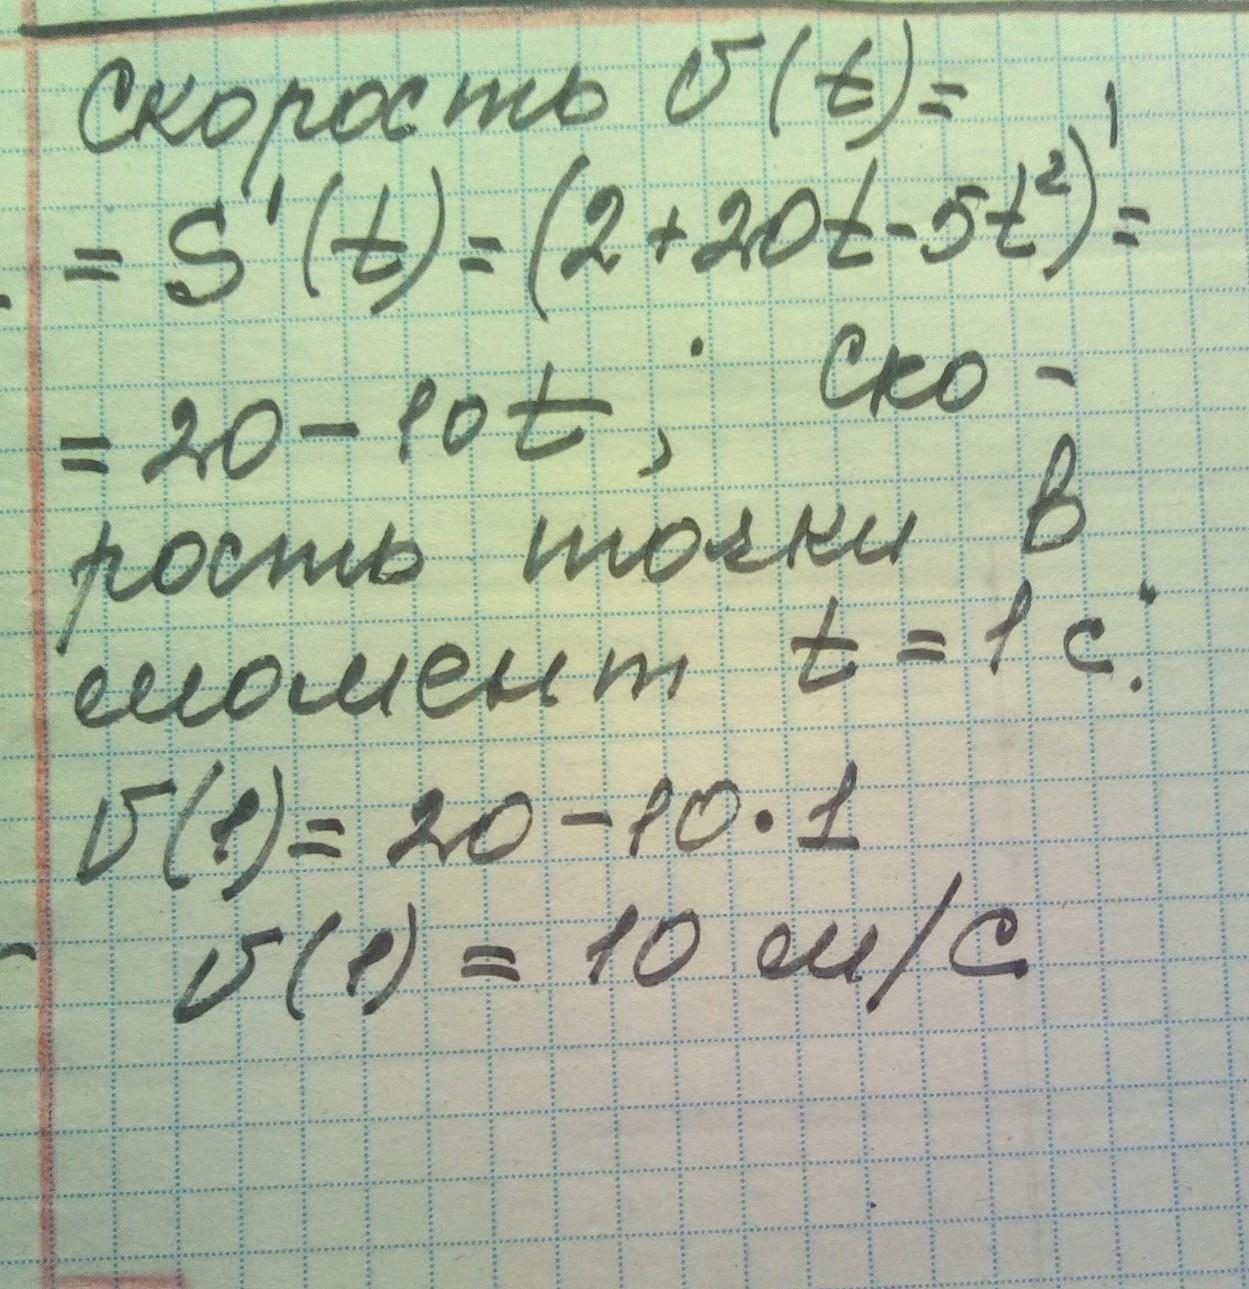 Скорость υ(t)=
= S'(t) = (2+20t-5t²)' =
= 20 - 10t; Ско-
рость точки в
момент t = 1 с:
υ(1) = 20 - 10·1
υ(1) = 10 м/с